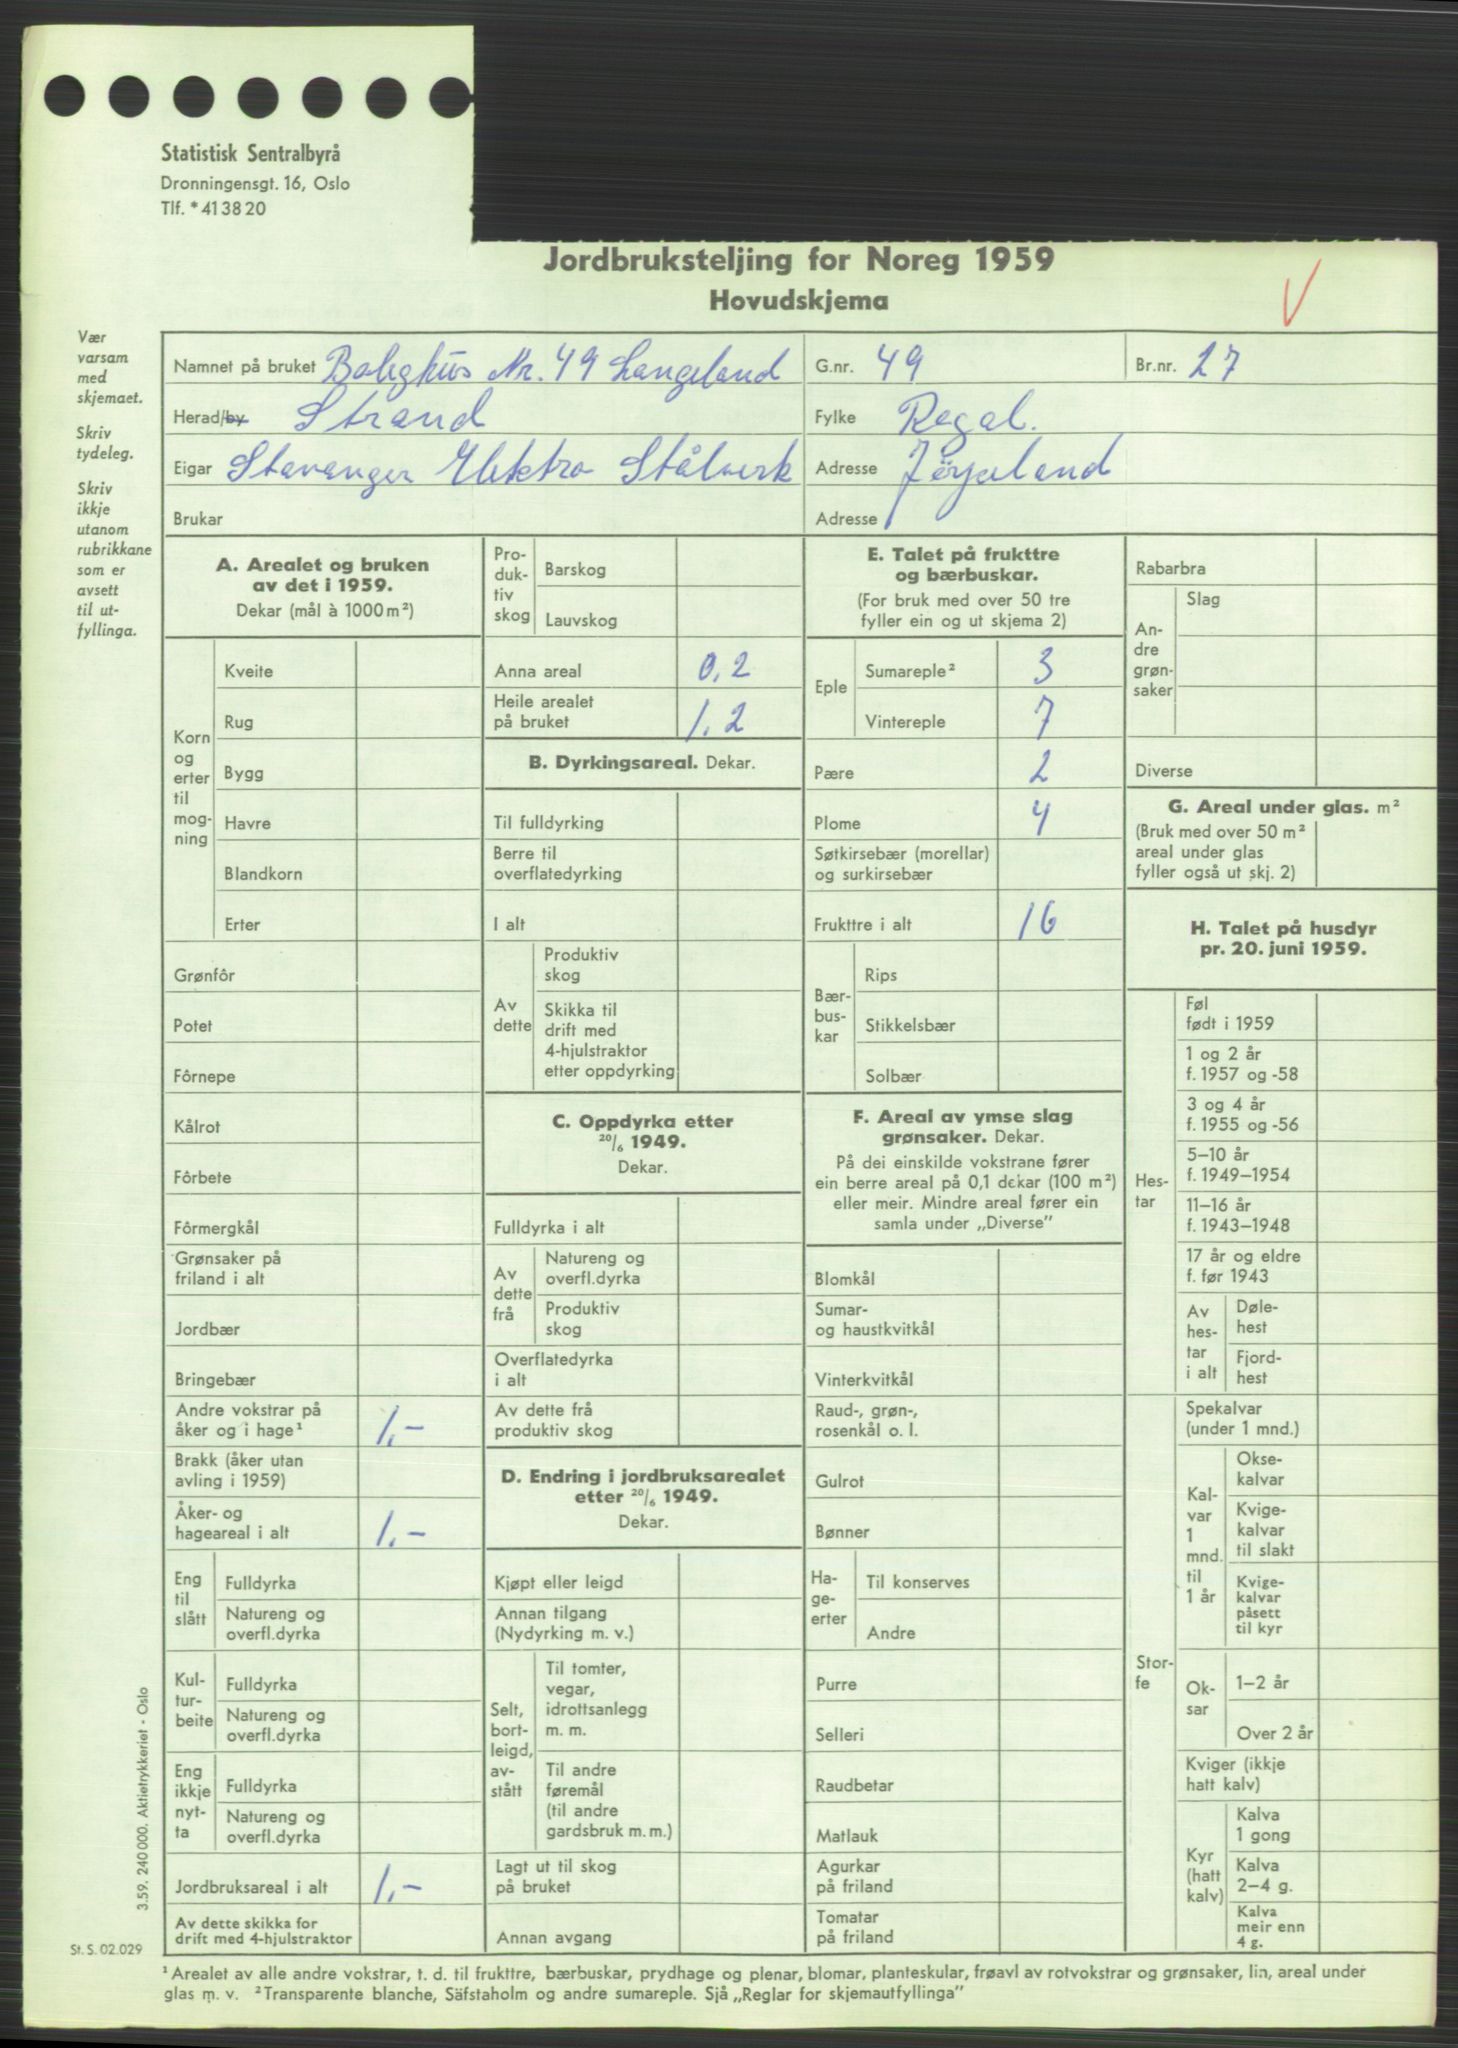 Statistisk Sentralbyrå
Dronningensgt. 16, Oslo
Tlf. *41 38 20
Jordbruksteljing for Noreg 1959
Hovudskjema
Vær
varsam
med
skjemaet.
Skriv
tydeleg.
Skriv
ikkje
utanom
rubrikkane
som er
avsett
til ut-
fyllinga.
Namnet på bruket Bolighus Nr. 49 Langeland
G.nr. 49
Br.nr. 27
Herad/by Strand
Fylke Rogal.
Eigar Stavanger Elektro Stålverk
Adresse Jörpeland
Brukar
Adresse
A. Arealet og bruken
av det i 1959.
Dekar (mål à 1000 m²)
Korn
og
erter
til
mog-
ning
Kveite
Rug
Bygg
Havre
Blandkorn
Erter
Grønfôr
Potet
Fôrnepe
Kålrot
Fôrbete
Fôrmergkål
Grønsaker på
friland i alt
Jordbær
Bringebær
Andre vokstrar på
åker og i hage¹ 1,-
Brakk (åker utan
avling i 1959)
Åker- og
hageareal i alt 1.-
Eng
til
slått
Fulldyrka
Natureng og
overfl.dyrka
Kul-
tur-
beite
Fulldyrka
Natureng og
overfl.dyrka
Eng
ikkje
nyt-
ta
Fulldyrka
Natureng og
overfl.dyrka
Jordbruksareal i alt 1.-
Av dette skikka for
drift med 4-hjulstraktor
Pro-
duk-
tiv
skog
Barskog
Lauvskog
Anna areal 0,2
Heile arealet
på bruket 1.2
B. Dyrkingsareal. Dekar.
Til fulldyrking
Berre til
overflatedyrking
I alt
Av
dette
Produktiv
skog
Skikka til
drift med
4-hjulstraktor
etter oppdyrking
C. Oppdyrka etter
20/6 1949.
Dekar.
Fulldyrka i alt
Av
dette
frå
Natureng og
overfl.dyrka
Produktiv
skog
Overflatedyrka
i alt
Av dette frå
produktiv skog
D. Endring i jordbruksarealet
etter 20/6 1949.
Dekar.
Kjøpt eller leigd
Annan tilgang
(Nydyrking m. v.)
Selt,
bort-
leigd,
av-
stått
Til tomter,
vegar,
idrottsanlegg
m. m.
Til andre
føremål
(til andre
gardsbruk m. m.)
Lagt ut til skog
på bruket
Annan avgang
E. Talet på frukttre
og bærbuskar.
(For bruk med over 50 tre
fyller ein og ut skjema 2)
Eple
Sumareple² 3
Vintereple 7
Pære 2
Plome 4
Søtkirsebær (morellar)
og surkirsebær
Frukttre i alt 16
Bær-
bus-
kar
Rips
Stikkelsbær
Solbær
F. Areal av ymse slag
grønsaker. Dekar.
På dei einskilde vokstrane fører
ein berre areal på 0,1 dekar (100 m²)
eller meir. Mindre areal fører ein
samla under „Diverse”
Blomkål
Sumar-
og haustkvitkål
Vinterkvitkål
Raud-, grøn-,
rosenkål o. l.
Gulrot
Bønner
Ha-
ge-
erter
Til konserves
Andre
Purre
Selleri
Raudbetar
Matlauk
Agurkar
på friland
Tomatar
på friland
Rabarbra
An-
dre
grøn-
saker
Slag
Diverse
G. Areal under glas. m²
(Bruk med over 50 m²
areal under glas
fyller også ut skj. 2)
H. Talet på husdyr
pr. 20. juni 1959.
Hes-
tar
Føl
født i 1959
1 og 2 år
f. 1957 og -58
3 og 4 år
f. 1955 og -56
5–10 år
f. 1949–1954
11–16 år
f. 1943–1948
17 år og eldre
f. før 1943
Av
hes-
tar
i alt
Døle-
hest
Fjord-
hest
Stor-
fe
Spekalvar
(under 1 mnd.)
Kal-
var
1
mnd.
til
1 år
Okse-
kalvar
Kvige-
kalvar
til slakt
Kvige-
kalvar
påsett
til kyr
Ok-
sar
1–2 år
Over 2 år
Kviger (ikkje
hatt kalv)
Kyr
(hatt
kalv)
Kalva
1 gong
Kalva
2–4 g.
Kalva
meir enn
4 g.
3.59. 240 000. Aktietrykkeriet - Oslo
St. S. 02.029
¹ Arealet av alle andre vokstrar, t. d. til frukttre, bærbuskar, prydhage og plenar, blomar, planteskular, frøavl av rotvokstrar og grønsaker, lin, areal under
glas m. v. ² Transparente blanche, Säfstaholm og andre sumareple. Sjå „Reglar for skjemautfyllinga”